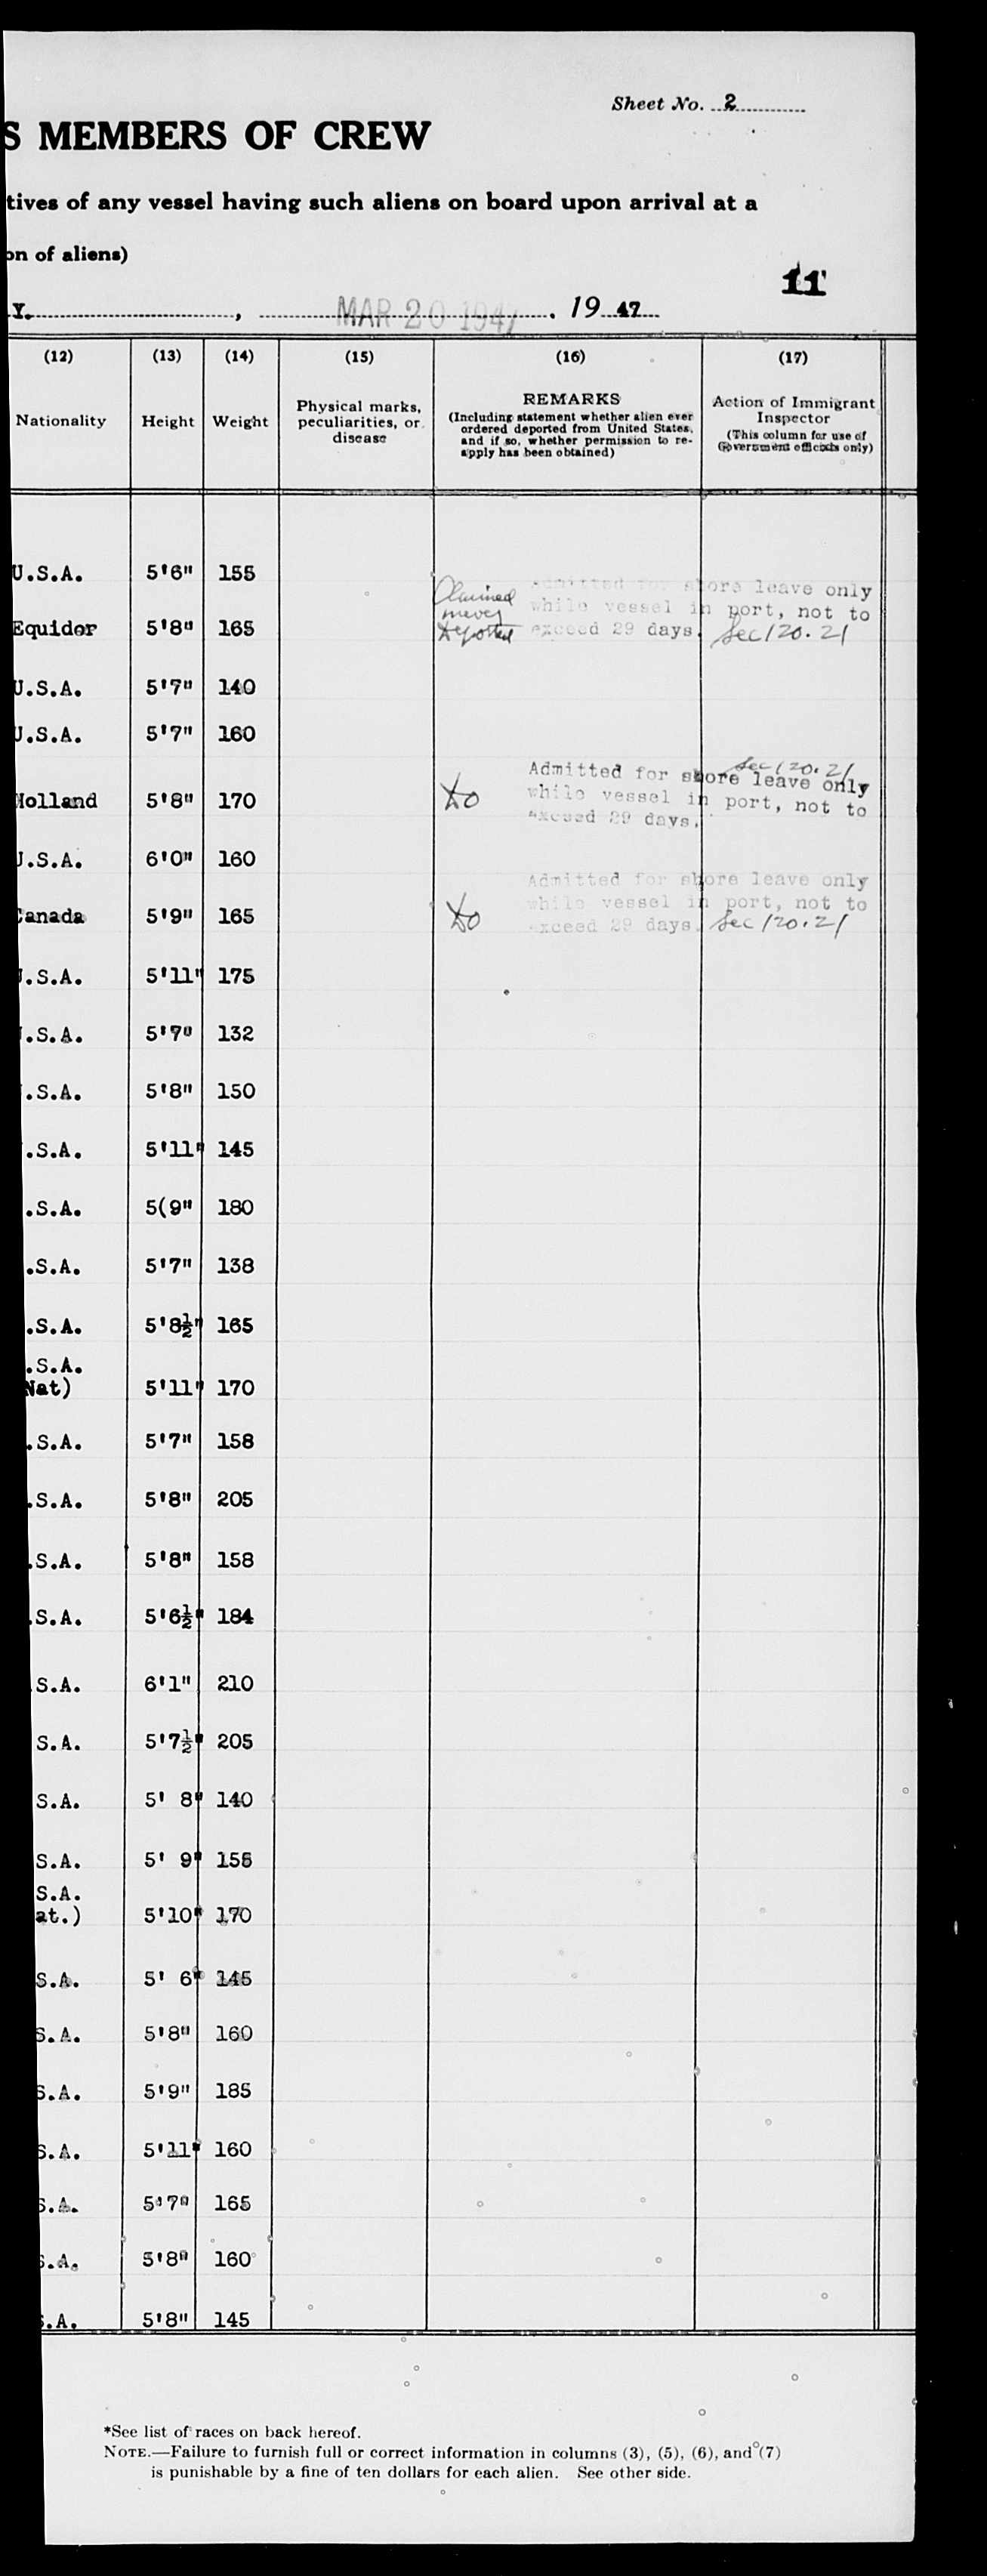 Sheet No. 2
S MEMBERS OF CREW
tives of any vessel having such aliens on board upon arrival at a
on of aliens)
11
Y. , MAR 20 1947 , 19 47
(12) (13) (14) (15) (16) (17)
Nationality Height Weight Physical marks, peculiarities, or disease
REMARKS
(Including statement whether alien ever
ordered deported from United States,
and if so, whether permission to re-
apply has been obtained)
Action of Immigrant
Inspector
(This column for use of
Government officials only)
U.S.A. 5'6" 155
Claimed never deported
Admitted for shore leave only
while vessel in port, not to
exceed 29 days. Sec 120.21
Equidor 5'8" 165
U.S.A. 5'7" 140
U.S.A. 5'7" 160
Sec 120.21
Admitted for shore leave only
while vessel in port, not to
exceed 29 days.
Holland 5'8" 170 Do
U.S.A. 6'0" 160
Admitted for shore leave only
while vessel in port, not to
exceed 29 days. Sec 120.21
Canada 5'9" 165 Do
.S.A. 5'11" 175
.S.A. 5'7" 132
.S.A. 5'8" 150
.S.A. 5'11" 145
.S.A. 5(9" 180
.S.A. 5'7" 138
.S.A. 5'8½" 165
.S.A.
Nat) 5'11" 170
.S.A. 5'7" 158
.S.A. 5'8" 205
.S.A. 5'8" 158
.S.A. 5'6½" 184
S.A. 6'1" 210
S.A. 5'7½" 205
S.A. 5' 8" 140
S.A. 5' 9" 155
S.A.
at.) 5'10" 170
S.A. 5' 6" 145
S.A. 5'8" 160
S.A. 5'9" 185
S.A. 5'11" 160
S.A. 5'7" 165
S.A. 5'8" 160
S.A. 5'8" 145
*See list of races on back hereof.
NOTE.—Failure to furnish full or correct information in columns (3), (5), (6), and (7)
is punishable by a fine of ten dollars for each alien. See other side.